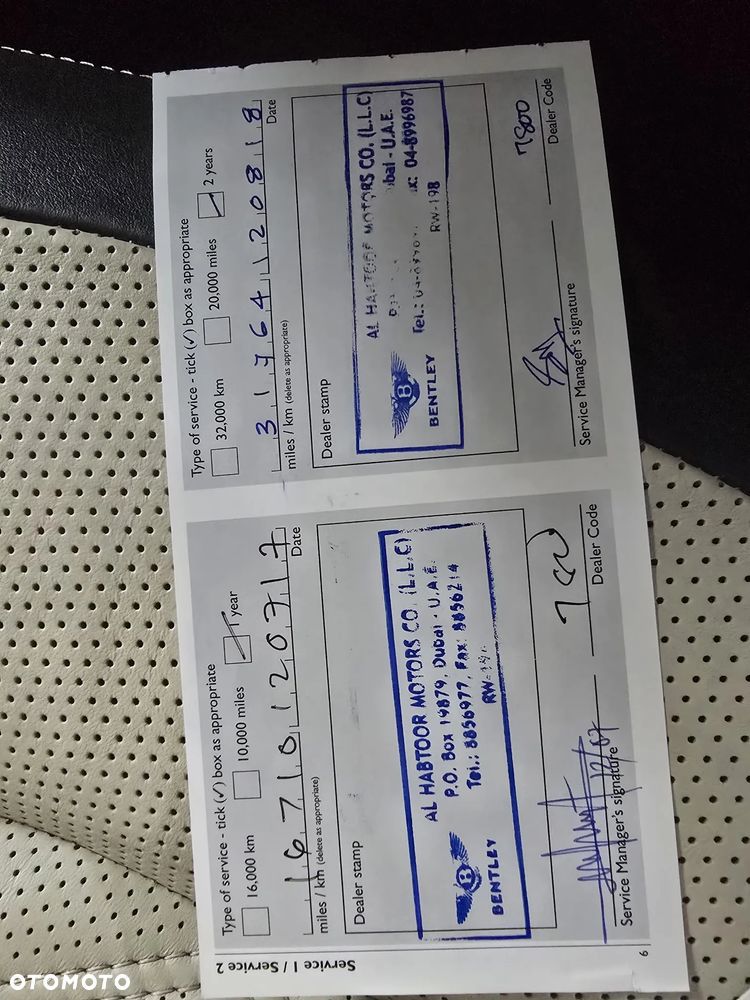 Service 1 / Service 2
Type of service - tick (✓) box as appropriate
16,000 km
10,000 miles
1 year
1 6 7 1 0 1 2 0 7 1 7
miles / km (delete as appropriate)
Date
Dealer stamp
AL HABTOOR MOTORS CO. (L.L.C)
P.O. Box 19879, Dubai - U.A.E.
Tel.: 8856977, Fax: 8856214
B
BENTLEY
Service Manager's signature
Dealer Code
6
Type of service - tick (✓) box as appropriate
32,000 km
20,000 miles
2 years
3 1 7 6 4 1 2 0 8 1 8
miles / km (delete as appropriate)
Date
Dealer stamp
AL HABTOOR MOTORS CO. (L.L.C)
Dubai - U.A.E.
Tel.: 04-8996987
RW-198
B
BENTLEY
7800
Service Manager's signature
Dealer Code
OTOMOTO